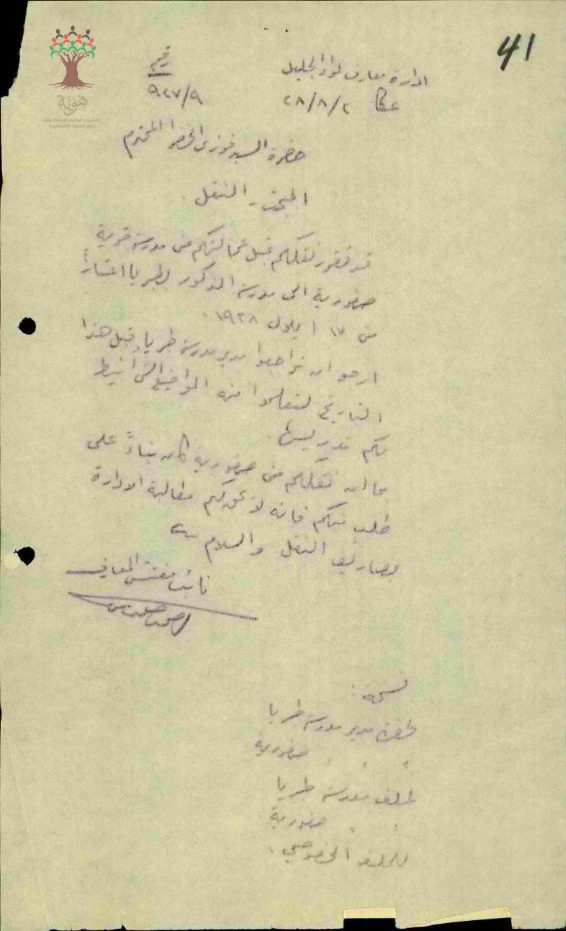 41
ادارة معارف لواء الجليل
عكا
٢٨/٨/٢
نمرة
٩٢٧/٩
هوية
حضرة السيد فوزي الخضرا المحترم
المبحث - النقل
قد تقرر نقلكم بمثل عمالتكم من مدرسة قرية
صفورية الى مدرسة الذكور بطبريا اعتباراً
من ١٧ ايلول ١٩٢٨.
ارجو ان تراجعوا مدير مدرسة طبريا قبل هذا
التاريخ لتعلموا منه المواضيع التي انيط
بكم تدريسها.
بما ان نقلكم من صفورية كان بناءً على
طلب منكم فانه لا يحق لكم مطالبة الادارة
بمصاريف النقل والسلام
نائب مفتش المعارف
نسخة:
لحضرة مدير مدرسة طبريا
" " " صفورية
لملف مدرسة طبريا
" " صفورية
للملف الخصوصي.